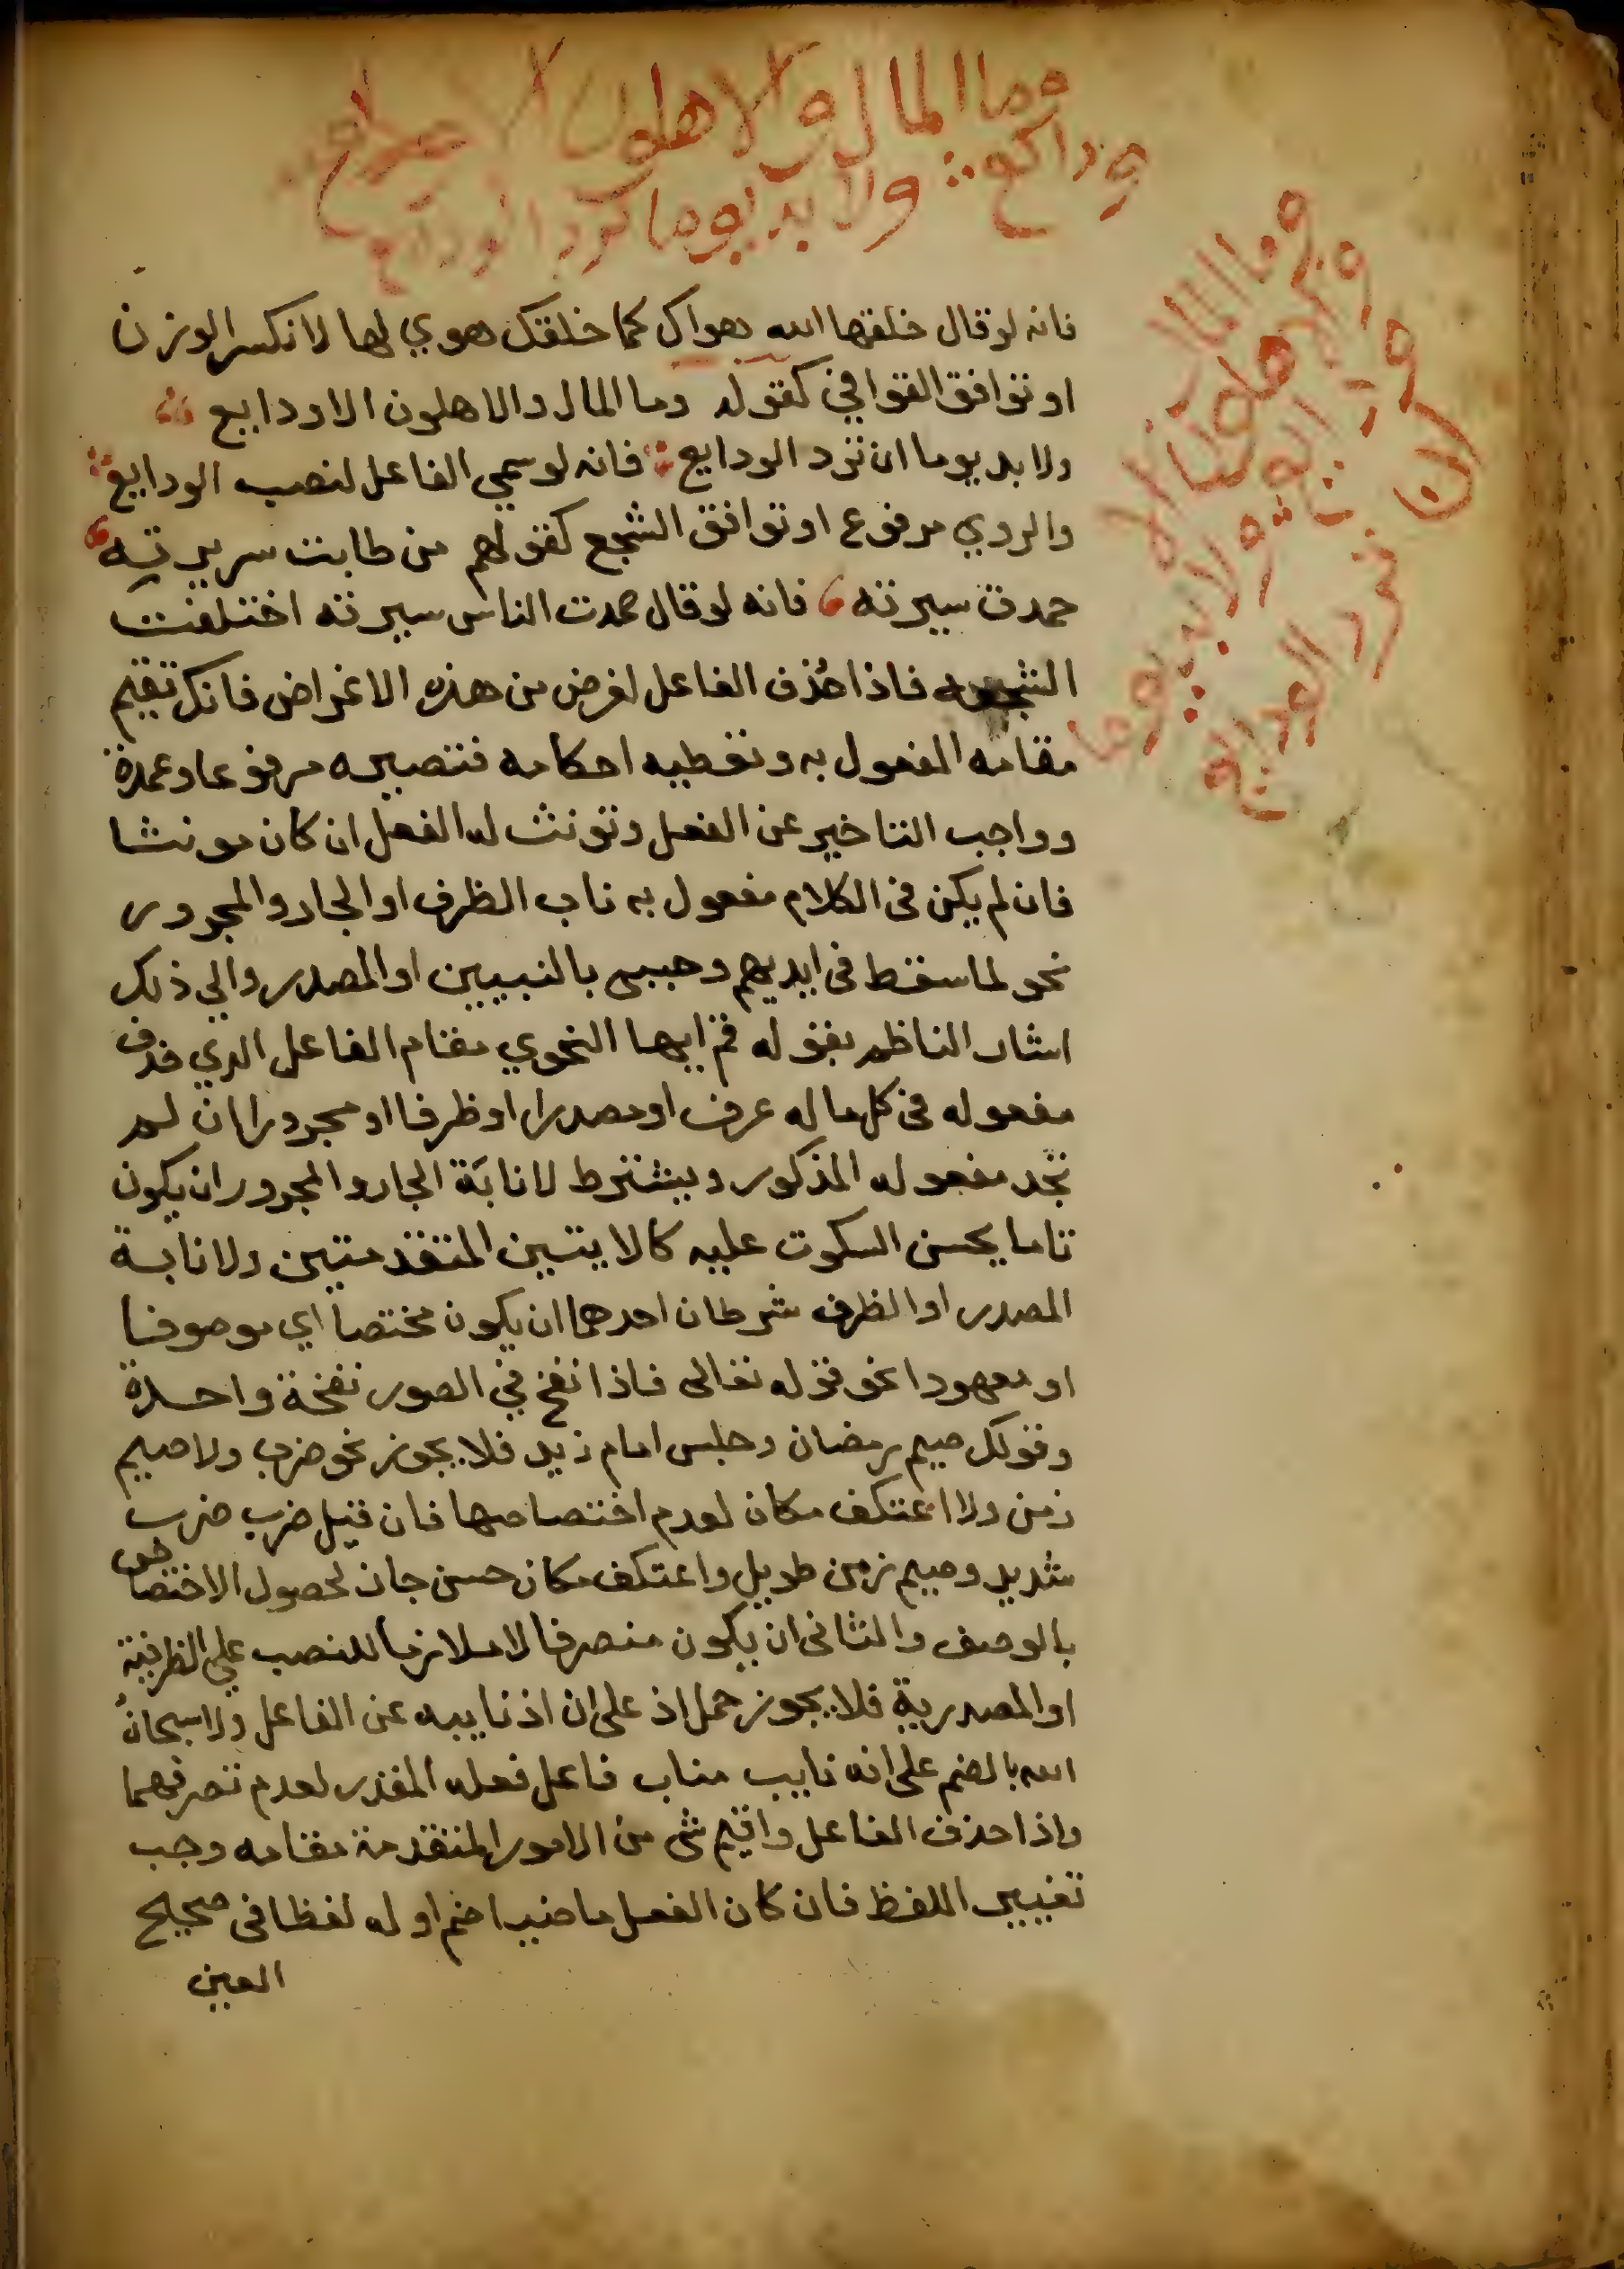 وما المال والاهلون الا
وداىع ولا بد يوما ترد الودايع
فانه لوقال خلقها الله هواك كما خلقك هوي لها لانكسر الوزن
او توافق القوافي كقوله وما المال والاهلون الا ودايع
ولا بد يوما ان ترد الودايع فانه لو سمي الفاعل لنصب الودايع
والروي مرفوع او توافق السجع كقولهم من طابت سريرته
حمدت سيرته فانه لو قال حمدت الناس سيرته اختلفت
فاذا حُذف الفاعل لغرض من هذه الاغراض فانك تقيم
مقامه المفعول به وتعطيه احكامه فتصيره مرفوعا وعمدة
وواجب التاخير عن الفعل وتونث له الفعل ان كان مونثا
فان لم يكن في الكلام مفعول به ناب الظرف او الجار والمجرور
نحو لما سقط في ايديهم وجيىء بالنبيين او المصدر والي ذلك
اشار الناظم بقوله قم ايها النحوي مقام الفاعل الذي حذف
مفعوله في كل ما له عرف او مصدرا او ظرفا او مجرورا ان لم
تجد مفعوله المذكور ويشترط لانابَة الجار والمجرور ان يكون
تاما يحسن السكوت عليه كالايتين المتقدمتين ولانابة
المصدر او الظرف شرطان احدهما ان يكون مختصا اي موصوفا
او معهودا نحو قوله تعالى فاذا نفخ في الصور نفخة واحدة
وقولك صيم رمضان وجلس امام زيد فلا يجوز نحو ضرب ولا صيم
زمن ولا اعتكف مكان لعدم اختصاصها فان قيل ضرب ضرب
شديد وصيم زمن طويل واعتكف مكان حسن جاز لحصول الاختصاص
بالوصف والثاني ان يكون متصرفا لا ملازما للنصب علي الظرفية
او المصدرية فلا يجوز حمل اذ على ان اذ ناييه عن الفاعل ولا سبحانُ
الله بالضم على انه نايب مناب فاعل فعله المقدر لعدم تصرفهما
واذا حذف الفاعل واقيم شي من الامور المتقدمة مقامه وجب
تغيير اللفظ فان كان الفعل ماضيا ضم اوله لفظا في صحيح
العين